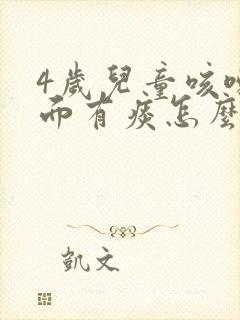 4歲兒童咳嗽
而有痰怎麼
凱文